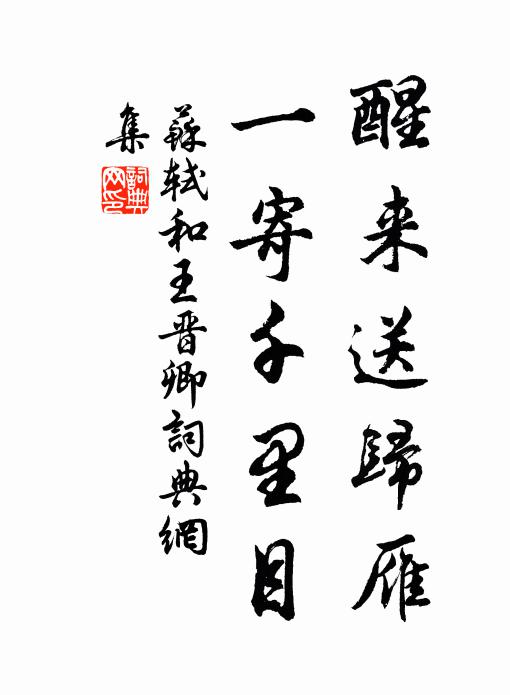 醒来送歸雁
一寄千里目
蘇軾和王晋卿詞典網
集
詞典網印